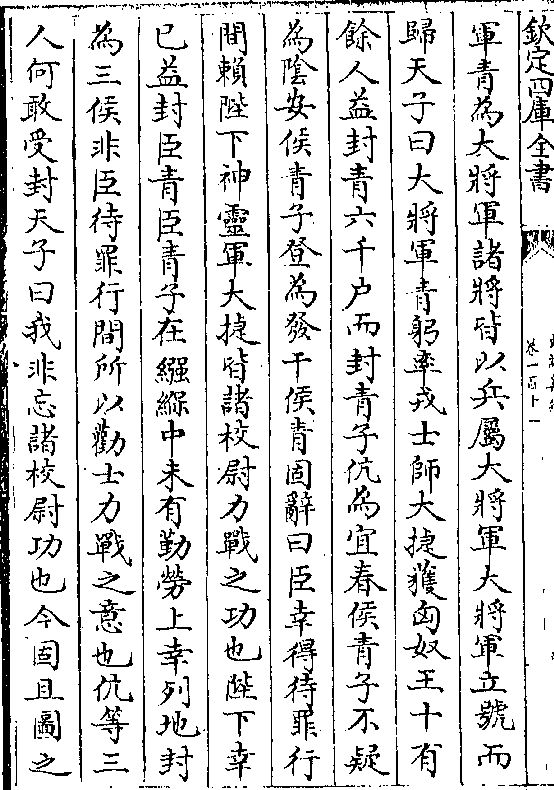 欽定四庫全書
卷一百十一
軍青為大將軍諸將皆以兵屬大將軍大將軍立號而
歸天子曰大將軍青躬率戎士師大捷獲匈奴王十有
餘人益封青六千户而封青子伉為宜春侯青子不疑
為陰安侯青子登為發干侯青固辭曰臣幸得待罪行
間賴陛下神靈軍大捷皆諸校尉力戰之功也陛下幸
已益封臣青臣青子在繈緥中未有勤勞上幸列地封
為三侯非臣待罪行間所以勸士力戰之意也伉等三
人何敢受封天子曰我非忘諸校尉功也今固且圖之